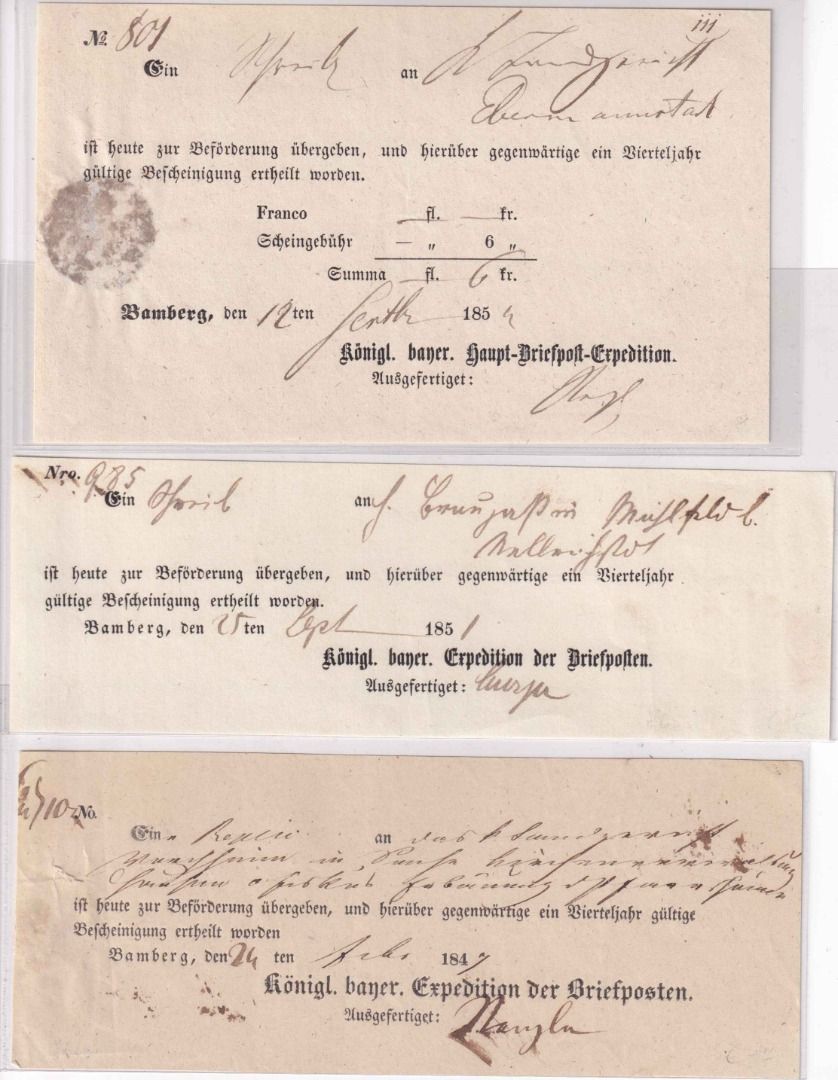 № 801
Ein Schreib an K Landgericht
Ebermannstadt
ist heute zur Beförderung übergeben, und hierüber gegenwärtige ein Vierteljahr
gültige Bescheinigung ertheilt worden.
Franco — fl. — kr.
Scheingebühr — „ 6 „
Summa — fl. 6 kr.
Bamberg, den 12ten Septbr 185
Königl. bayer. Haupt-Briefpost-Expedition.
Ausgefertiget:
Nro. 985
Ein Schreib an H. in Mühlfeld b.
Mellrichstdt
ist heute zur Beförderung übergeben, und hierüber gegenwärtige ein Vierteljahr
gültige Bescheinigung ertheilt worden.
Bamberg, den 25ten Sept 1851
Königl. bayer. Expedition der Briefposten.
Ausgefertiget:
No.
Ein an das k Landgericht
in
ist heute zur Beförderung übergeben, und hierüber gegenwärtige ein Vierteljahr gültige
Bescheinigung ertheilt worden
Bamberg, den 24 ten Febr 184
Königl. bayer. Expedition der Briefposten.
Ausgefertiget: